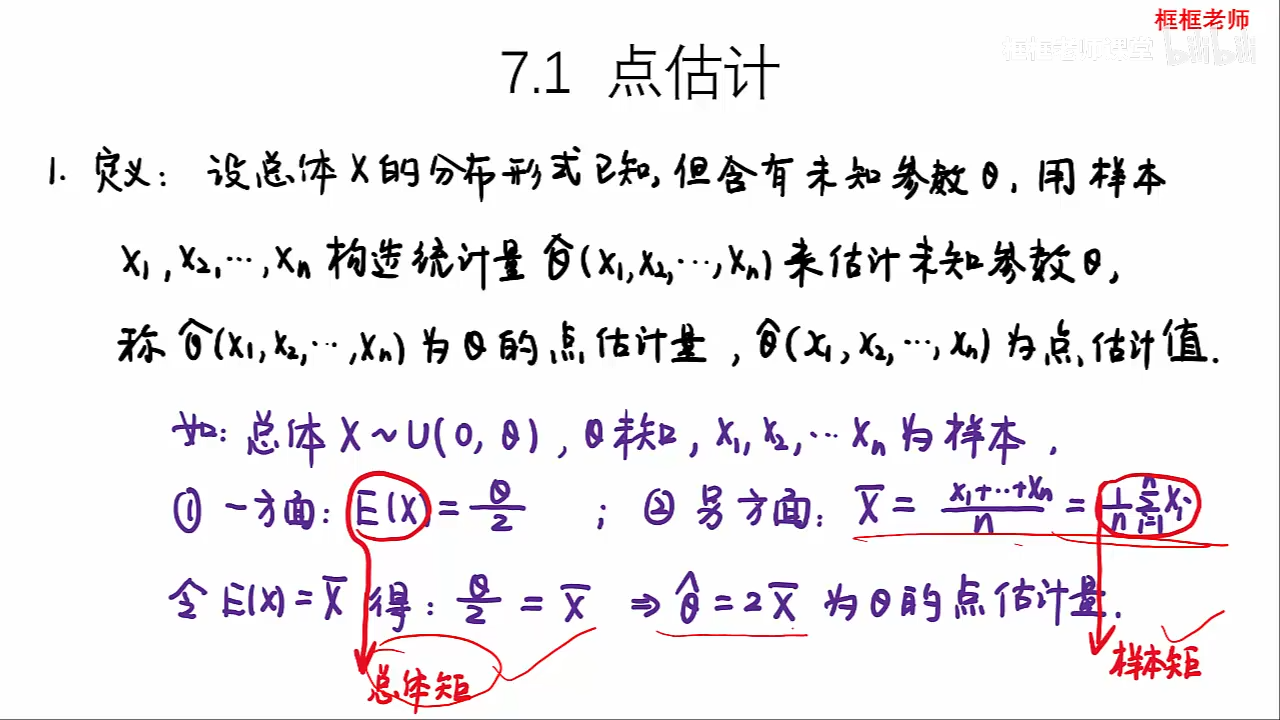 框框老师
框框老师课堂 bilibili
7.1 点估计
1. 定义: 设总体X的分布形式已知, 但含有未知参数θ, 用样本
X₁,X₂,…,Xₙ 构造统计量 θ̂(X₁,X₂,…,Xₙ)来估计未知参数θ,
称 θ̂(X₁,X₂,…,Xₙ)为θ的点估计量, θ̂(x₁,x₂,…,xₙ)为点估计值.
如: 总体X~U(0,θ), θ未知, X₁,X₂,…Xₙ为样本.
① 一方面: E(X)=θ/2 ; ② 另方面: X̅ = (X₁+…+Xₙ)/n = 1/n ∑ᵢ₌₁ⁿ Xᵢ
令 E(X)=X̅ 得: θ/2 = X̅ ⇒ θ̂=2X̅ 为θ的点估计量.
总体矩
样本矩